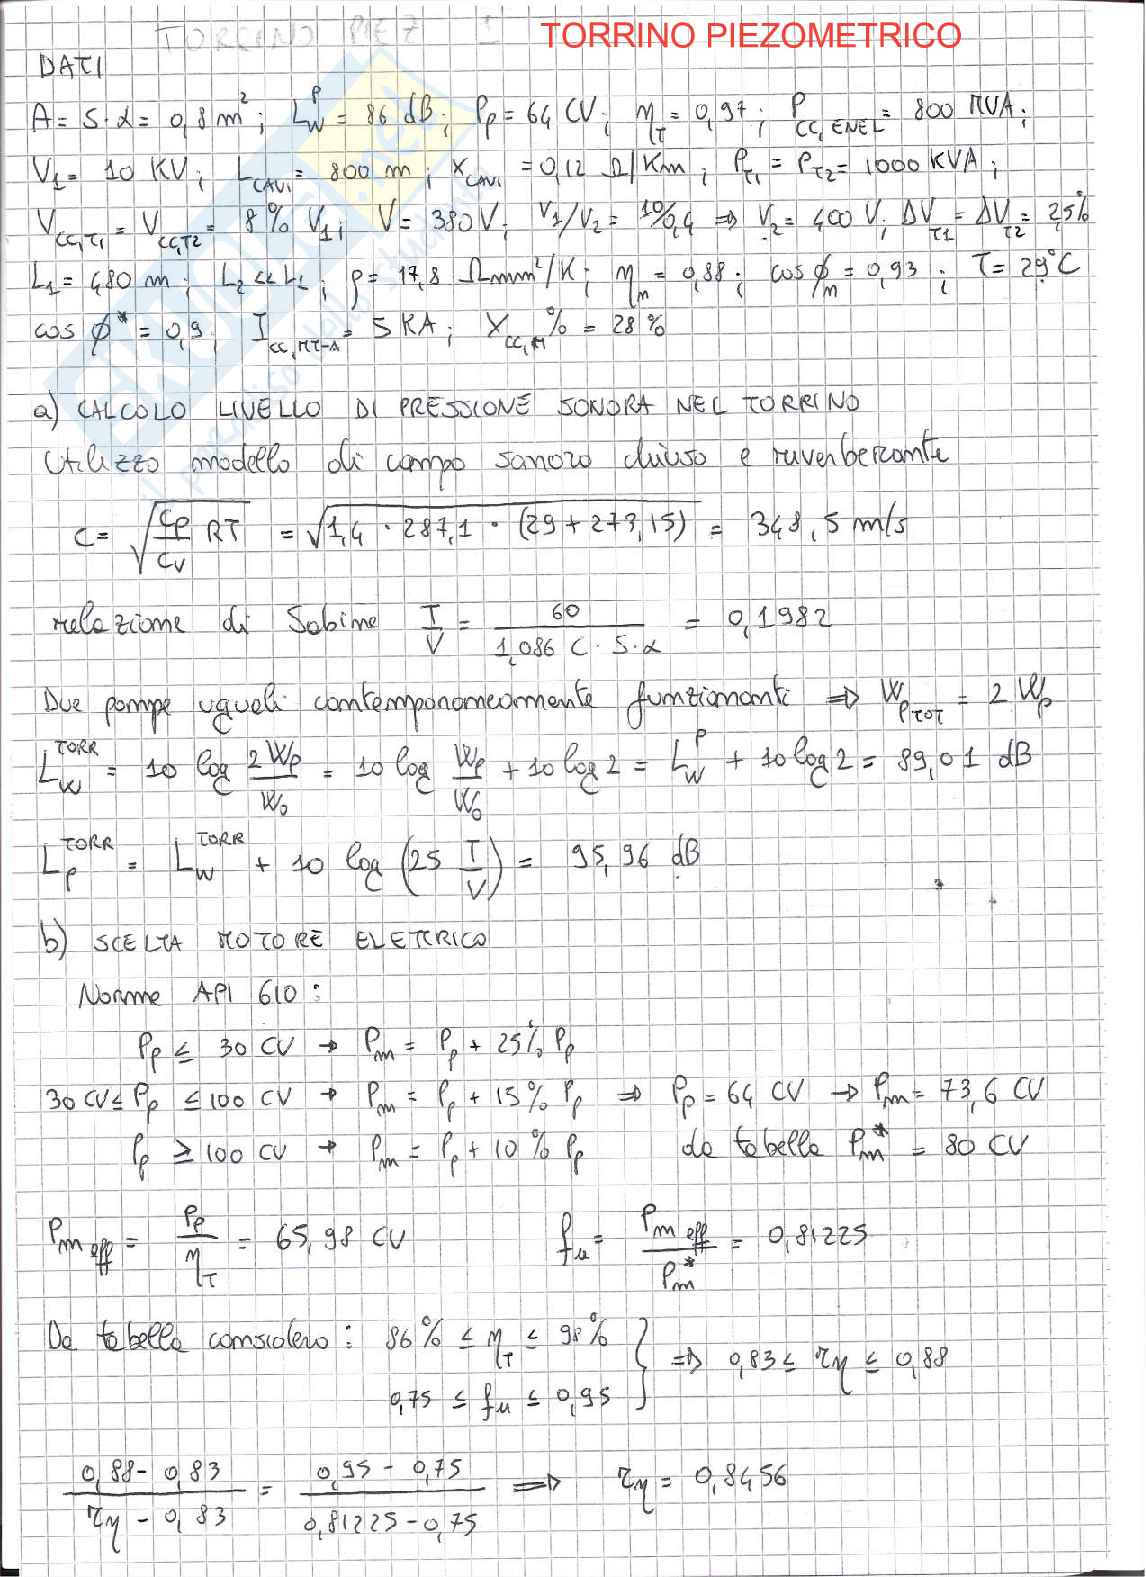 TORRINO PIEZOMETRICO
DATI
A = S·α = 0,8 m²; L_W^P = 86 dB; P_P = 64 CV; η_T = 0,97; P_CC,ENEL = 800 MVA;
V_1 = 10 KV; L_CAVI = 800 m; X_CAVI = 0,12 Ω/Km; P_T1 = P_T2 = 1000 KVA;
V_CC,T1 = V_CC,T2 = 8% V_1; V = 380 V; V1/V2 = 10/0,4 ⇒ V_2 = 400 V; ΔV_T1 = ΔV_T2 = 2,5%
L_1 = 480 m; L_2 << L_1; ρ = 17,8 Ωmm²/K; η_m = 0,88; cos φ_m = 0,93; T = 29°C
cos φ* = 0,9; I_CC,MT-A = 5 KA; X_CC,M% = 28%
a) CALCOLO LIVELLO DI PRESSIONE SONORA NEL TORRINO
Utilizzo modello di campo sonoro chiuso e riverberante
C = √(Cp/Cv RT) = √(1,4 · 287,1 · (29 + 273,15)) = 348,5 m/s
relazione di Sabine T/V = 60/(1,086 C · S·α) = 0,1982
Due pompe uguali contemporaneamente funzionanti ⇒ W_PTOT = 2 W_P
L_W^TORR = 10 log 2W_P/W_0 = 10 log W_P/W_0 + 10 log 2 = L_W^P + 10 log 2 = 89,01 dB
L_P^TORR = L_W^TORR + 10 log (25 T/V) = 95,96 dB
b) SCELTA MOTORE ELETTRICO
Norme API 610:
P_P ≤ 30 CV → P_m = P_P + 25% P_P
30 CV ≤ P_P ≤ 100 CV → P_m = P_P + 15% P_P ⇒ P_P = 64 CV → P_m = 73,6 CV
P_P ≥ 100 CV → P_m = P_P + 10% P_P da tabella P_m* = 80 CV
P_m eff = P_P/η_T = 65,98 CV f_u = P_m eff/P_m* = 0,81225
Da tabella considero: 86% ≤ η_T ≤ 98%
0,75 ≤ f_u ≤ 0,95 } ⇒ 0,83 ≤ τη ≤ 0,88
(0,88 - 0,83)/(τη - 0,83) = (0,95 - 0,75)/(0,81225 - 0,75) ⇒ τη = 0,8456